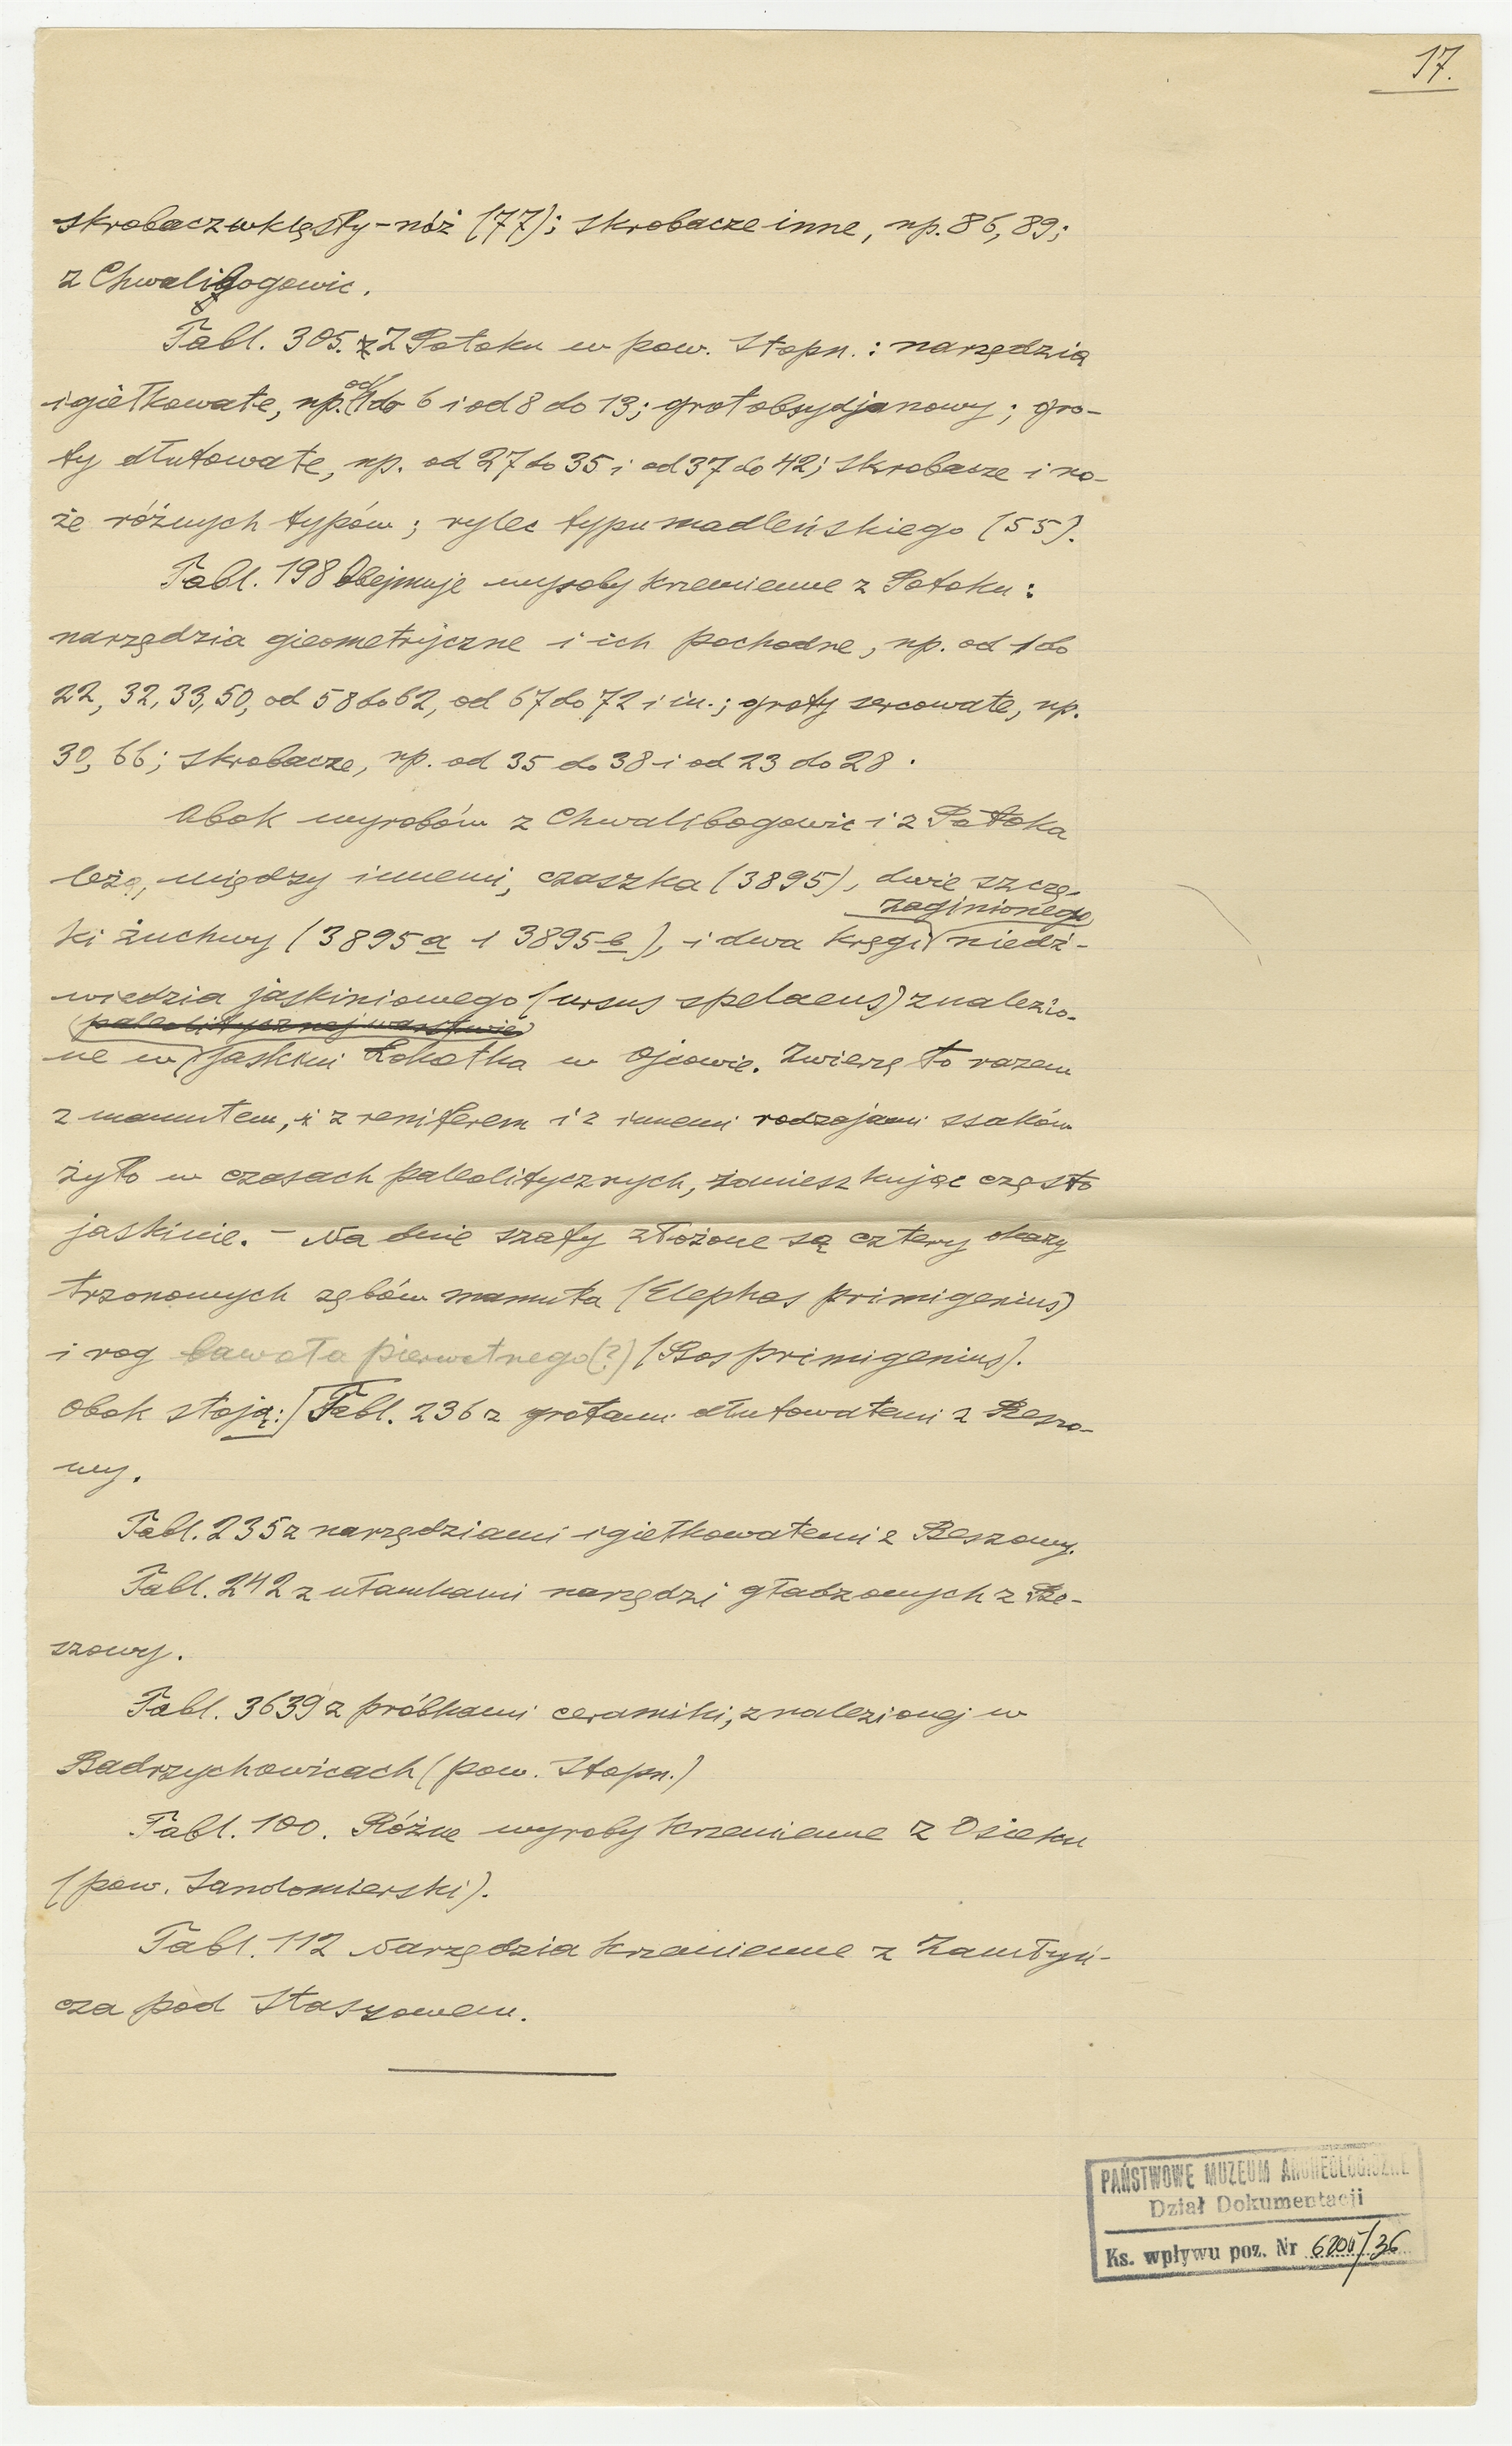 17.
skrobacz wklęsły – nóż (77); skrobacze inne, np. 86, 89;
z Chwalibogowic.
Tabl. 305. Z Potoku w pow. Stopn.: narzędzia
igiełkowate, np. od 1 do 6 i od 8 do 13; grot obsydjanowy; gro-
ty dłutowate, np. od 27 do 35 i od 37 do 42; skrobacze i no-
że różnych typów; rylec typu madleńskiego (55).
Tabl. 198 Obejmuje wyroby krzemienne z Potoku:
narzędzia gieometryczne i ich pochodne, np. od 1 do
22, 32, 33, 50, od 58 do 62, od 67 do 72 i in.; groty sercowate, np.
30, 66; skrobacze, np. od 35 do 38 i od 23 do 28.
Obok wyrobów z Chwalibogowic i z Potoka
leżą, między innemi, czaszka (3895), dwie szczę-
zaginionego
ki żuchwy (3895 a i 3895 b), i dwa kręgi niedź-
wiedzia jaskiniowego (ursus spelaeus) znalezio-
paleolitycznej warstwie
ne w jaskini Łokotka w Ojcowie. Zwierzę to razem
z mamutem, z reniferem i z innemi rodzajami ssaków
żyło w czasach paleolitycznych, zamieszkując często
jaskinie. – Na dnie szafy złożone są cztery okazy
trzonowych zębów mamuta (Elephas primigenius)
i rog bawoła pierwotnego (?) (Bos primigenius).
Obok stoją: Tabl. 236 z grotami dłutowatemi z Beszo-
wy.
Tabl. 235 z narzędziami igiełkowatemi z Beszowy.
Tabl. 242 z ułamkami narzędzi gładzonych z Be-
szowy.
Tabl. 3639 z próbkami ceramiki, znalezionej w
Badrzychowicach (pow. Stopn.)
Tabl. 100. Różne wyroby krzemienne z Osieku
(pow. Sandomierski).
Tabl. 112 Narzędzia krzemienne z Zamłyń-
cza pod Staszowem.
PAŃSTWOWE MUZEUM ARCHEOLOGICZNE
Dział Dokumentacji
Ks. wpływu poz. Nr /36